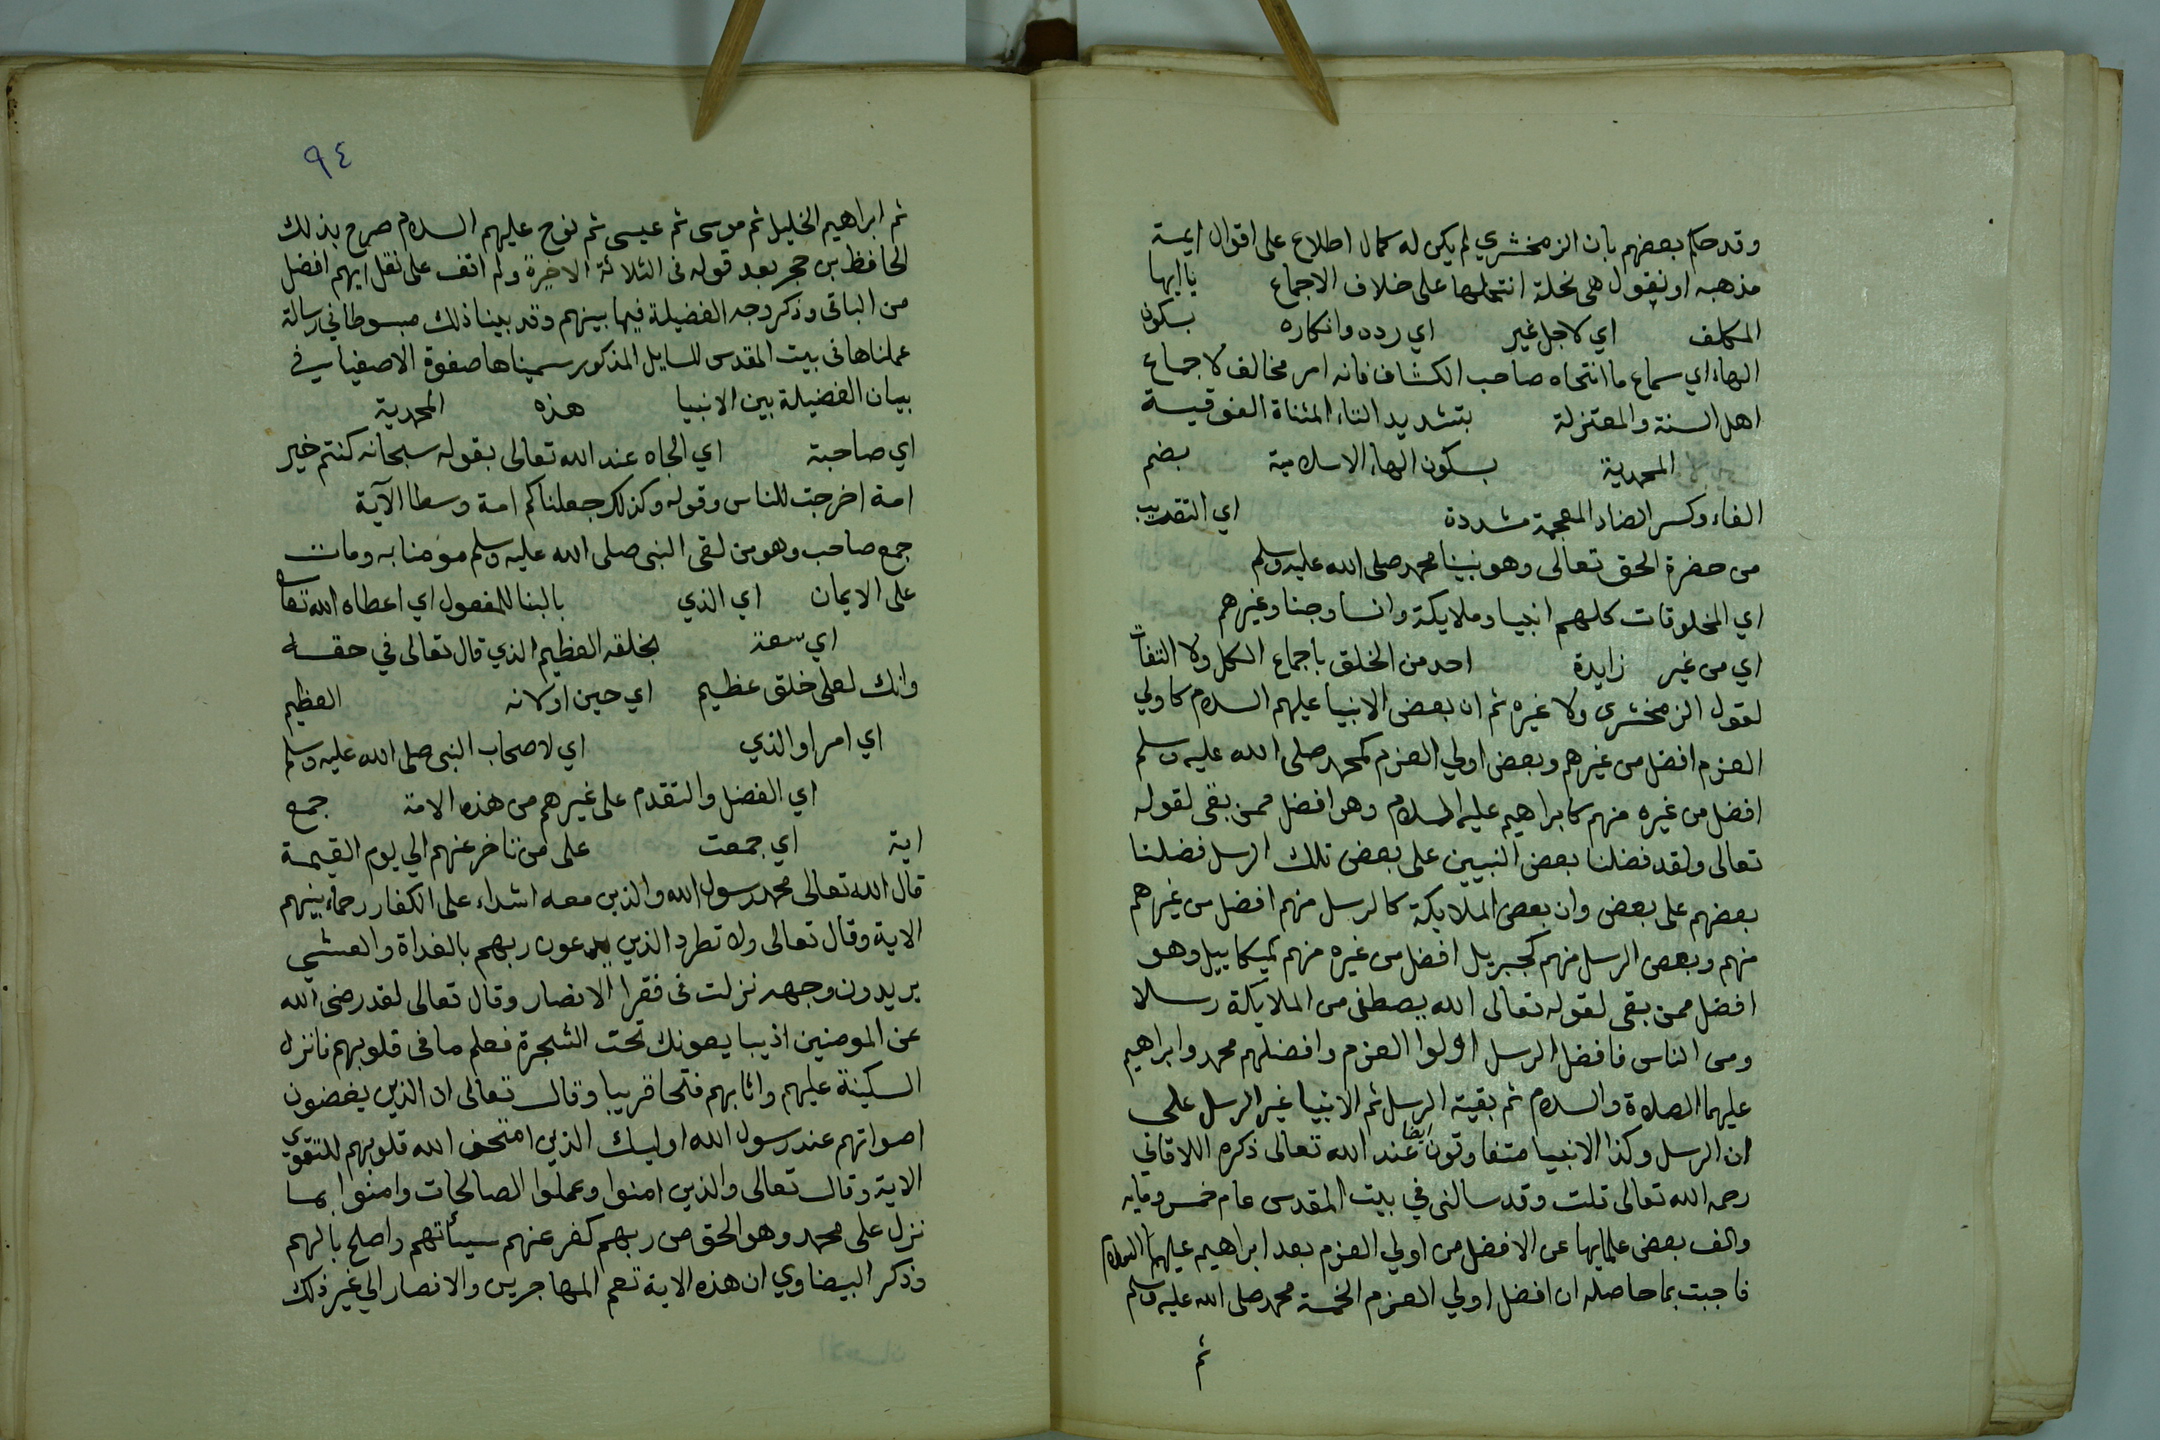 وقد حكم بعضهم بان الزمخشري لم يكن له كمال اطلاع على اقوال ايمة
مذهبه او نقول هى نحلة انتحلها على خلاف الاجماع يا ايها
المكلف اي لاجل غير اي رده وانكاره بسكون
الهاء اي سماع ما انتحاه صاحب الكشاف فانه امر مخالف لاجماع
اهل السنة والمعتزلة بتشديد التاء المثناة الفوقية
المحمدية بسكون الهاء الاسلامية بضم
الفاء وكسر الضاد المعجمة مشددة اي التقريب
من حضرة الحق تعالى وهو نبينا محمد صلى الله عليه وسلم
اي المخلوقات كلهم انبيا وملايكة وانسا وجنا وغيرهم
اي من غير زايدة احد من الخلق بأجماع الكل ولا التفات
لقول الزمخشري ولا غيره ثم ان بعض الانبيا عليهم السلام كاولي
العزم افضل من غيرهم وبعض اولي العزم كمحمد صلى الله عليه وسلم
افضل من غيره منهم كابراهيم عليه السلام وهو افضل ممن بقى لقوله
تعالى ولقد فضلنا بعض النبيين على بعض تلك الرسل فضلنا
بعضهم على بعض وان بعض الملايكة كالرسل منهم افضل من غيرهم
منهم وبعض الرسل منهم كجبريل افضل من غيره منهم كميكاييل وهو
افضل ممن بقى لقوله تعالى الله يصطفى من الملايكة رسلا
ومن الناس فافضل الرسل اولوا العزم وافضلهم محمد وابراهيم
عليهما الصلاة والسلام ثم بقية الرسل ثم الانبيا غير الرسل على
ان الرسل وكذا الانبيا متفاوتون ايضا عند الله تعالى ذكره اللاقاني
رحمه الله تعالى قلت وقد سالنى في بيت المقدس عام خمس ومايه
والف بعض علمايها عن الافضل من اولي العزم بعد ابراهيم عليهما السلام
فاجبت بما حاصله ان افضل اولي العزم الخمسة محمد صلى الله عليه وسلم
ثم
٩٤
ثم ابراهيم الخليل ثم موسى ثم عيسى ثم نوح عليهم السلام صرح بذلك
الحافظ بن حجر بعد قوله فى الثلاثة الاخيرة ولم اقف على نقل ايهم افضل
من الباقى وذكر وجه الفضيلة فيما بينهم وقد بينا ذلك مبسوطا في رسالة
عملناها فى بيت المقدس للسايل المذكور سميناها صفوة الاصفيا في
بيان الفضيلة بين الانبيا هذه المحمدية
اي صاحبة اي الجاه عند الله تعالى بقوله سبحانه كنتم خير
امة اخرجت للناس وقوله وكذلك جعلناكم امة وسطا الآية
جمع صاحب وهو من لقى النبى صلى الله عليه وسلم مؤمنا به ومات
على الايمان اي الذي بالبنا للمفعول اي اعطاه الله تعالى
اي سعة بخلقه العظيم الذي قال تعالى في حقه
وانك لعلى خلق عظيم اي حين اولانه العظيم
اي امر او الذي اي لاصحاب النبى صلى الله عليه وسلم
اي الفضل والتقدم على غيرهم من هذه الامة جمع
اية اي جمعت على من تاخر عنهم الي يوم القيمة
قال الله تعالى محمد رسول الله والذين معه اشداء على الكفار رحماء بينهم
الاية وقال تعالى ولا تطرد الذين يدعون ربهم بالغداة والعشي
يريدون وجهه نزلت فى فقرا الانصار وقال تعالى لقد رضى الله
عن المومنين اذ يبايعونك تحت الشجرة فعلم ما فى قلوبهم فانزل
السكينة عليهم واثابهم فتحا قريبا وقال تعالى ان الذين يغضون
اصواتهم عند رسول الله اوليك الذين امتحن الله قلوبهم للتقوي
الاية وقال تعالى والذين امنوا وعملوا الصالحات وامنوا بما
نزل على محمد وهو الحق من ربهم كفر عنهم سيئاتهم واصلح بالهم
وذكر البيضاوي ان هذه الاية تعم المهاجرين والانصار الي غير ذلك